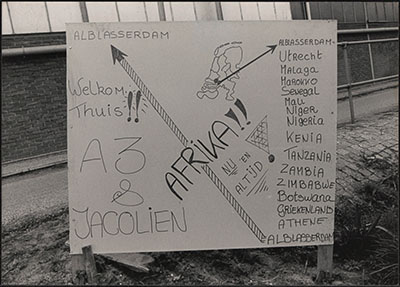 ALBLASSERDAM
Welkom
Thuis!!
A3
&
JACOLIEN
AFRIKA!!
NU EN
ALTIJD
ALBLASSERDAM-
Utrecht
Malaga
Marokko
Senegal
Mali
Niger
Nigeria
KENIA
TANZANIA
ZAMBIA
ZIMBABWE
Botswana
GRIEKENLAND
ATHENE
ALBLASSERDAM